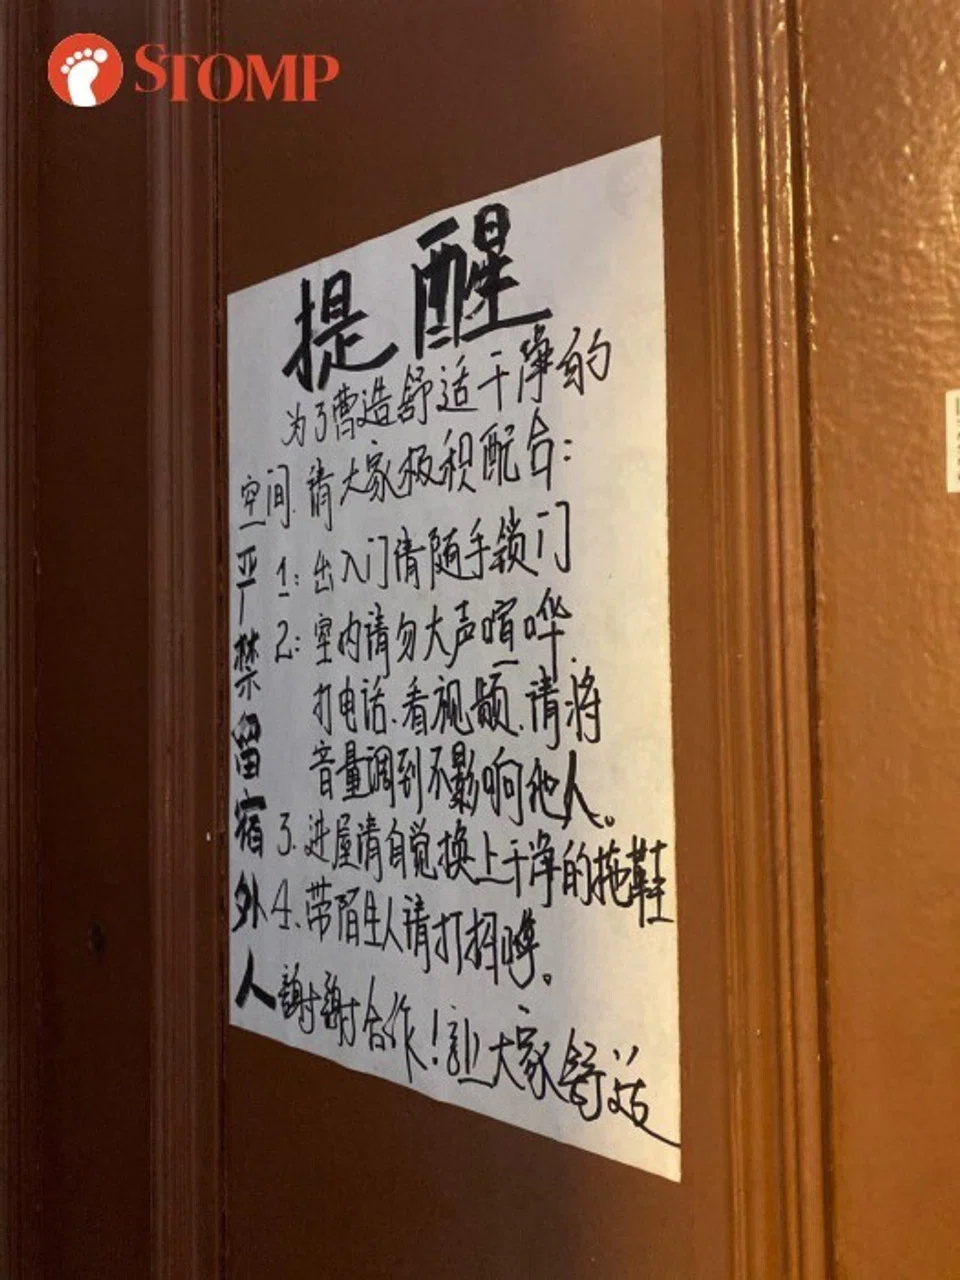 STOMP
提醒
为了曹造舒适干净的
空间.请大家极积配合:
1:出入门请随手锁门
2:室内请勿大声喧哗.
打电话.看视频.请将
音量调到不影响他人。
3.进屋请自觉换上干净的拖鞋
4、带陌生人请打招呼。
谢谢合作!让大家舒适
严禁留宿外人